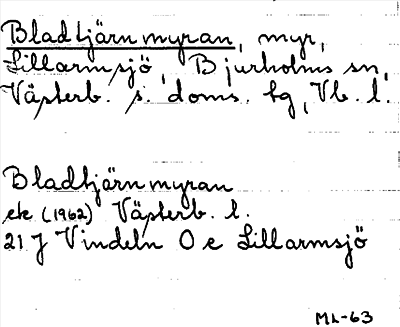 Bladtjärnmyran, myr,
Lillarmsjö, Bjurholms sn,
Västerb. s. doms. tg, Vb. l.
Bladtjärnmyran
ek (1962) Västerb. l.
21 J Vindeln O e Lillarmsjö
ML-63